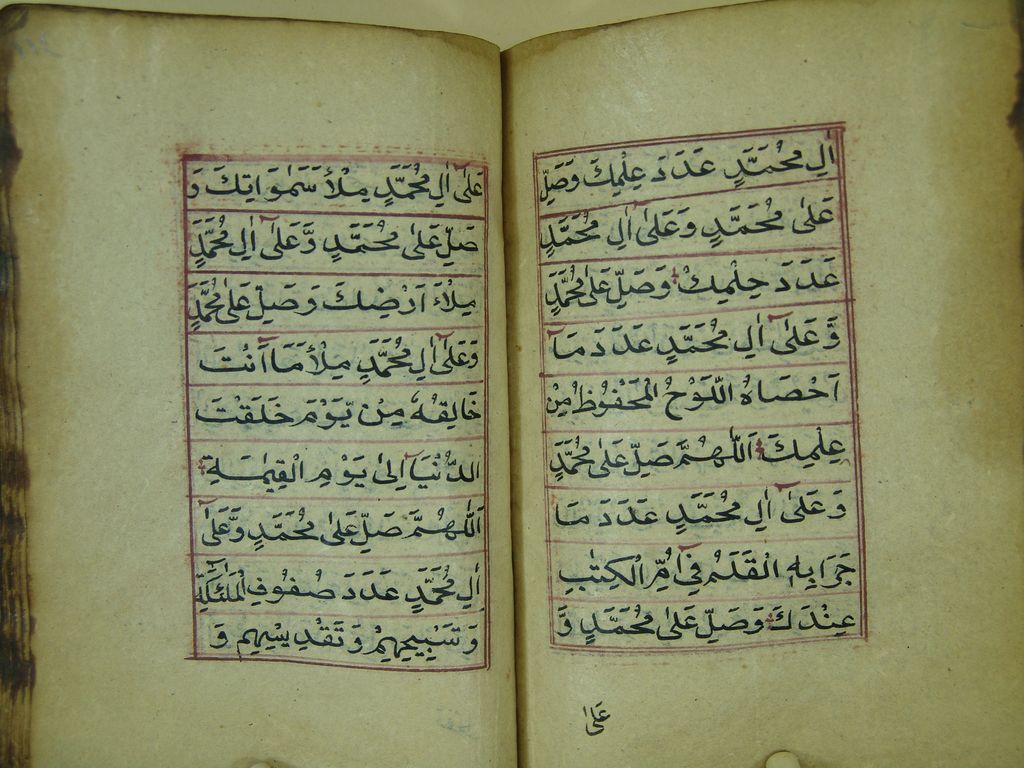 اٰلِ مُحَمَّدٍ عَدَدَ عِلْمِكَ وَصَلِّ
عَلٰى مُحَمَّدٍ وَعَلٰى اٰلِ مُحَمَّدٍ
عَدَدَ حِلْمِكَ وَصَلِّ عَلٰى مُحَمَّدٍ
وَّعَلٰى اٰلِ مُحَمَّدٍ عَدَدَ مَا
اَحْصَاهُ اللَّوْحُ الْمَحْفُوظُ مِنْ
عِلْمِكَ اَللّٰهُمَّ صَلِّ عَلٰى مُحَمَّدٍ
وَعَلٰى اٰلِ مُحَمَّدٍ عَدَدَ مَا
جَرَابِهِ الْقَلَمُ فِىْ اُمِّ الْكِتٰبِ
عِنْدَكَ وَصَلِّ عَلٰى مُحَمَّدٍ وَّ
عَلٰى
عَلٰى اٰلِ مُحَمَّدٍ مِلْأَ سَمٰوَاتِكَ وَ
صَلِّ عَلٰى مُحَمَّدٍ وَّعَلٰى اٰلِ مُحَمَّدٍ
مِلْاَءَ اَرْضِكَ وَصَلِّ عَلٰى مُحَمَّدٍ
وَعَلٰى اٰلِ مُحَمَّدٍ مِلْأَ مَا اَنْتَ
خَالِقُهٗ مِنْ يَّوْمَ خَلَقْتَ
الدُّنْيَا اِلٰى يَوْمِ الْقِيٰمَةِ
اَللّٰهُمَّ صَلِّ عَلٰى مُحَمَّدٍ وَّعَلٰى
اٰلِ مُحَمَّدٍ عَدَدَ صُفُوفِ الْمَلٰئِكَةِ
وَتَسْبِيْحِهِمْ وَتَقْدِيسِهِم وَ